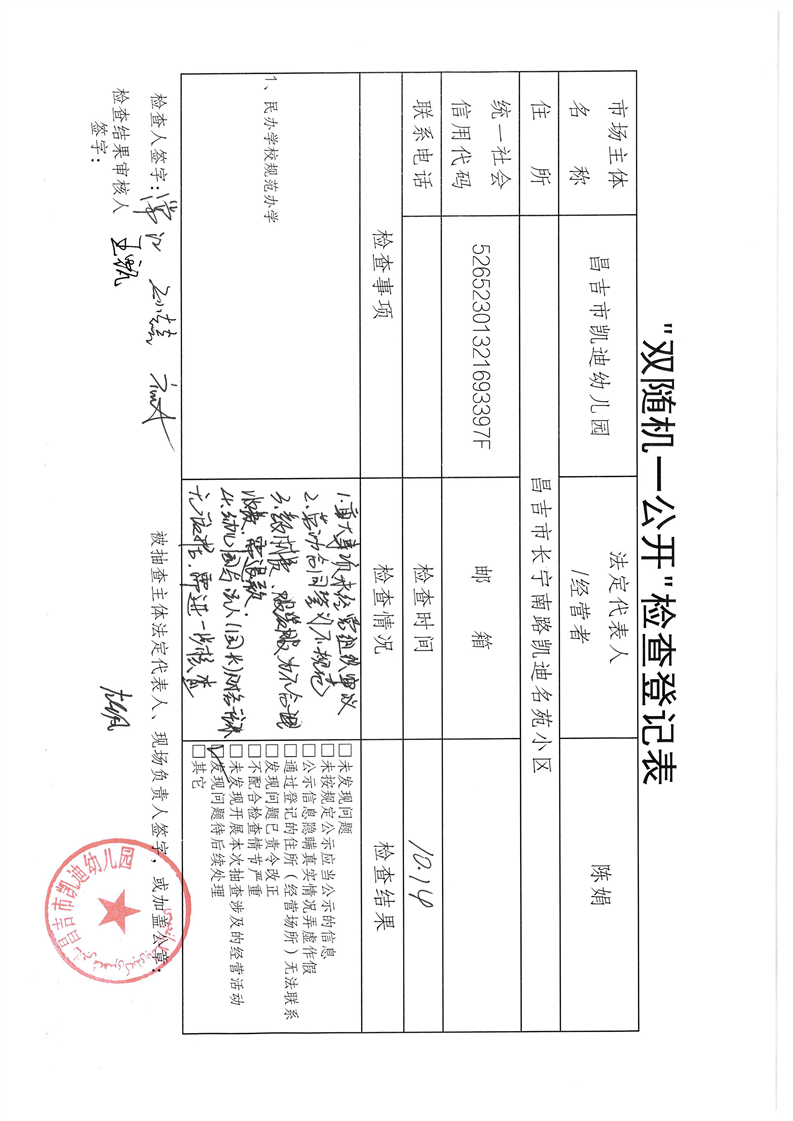 "双随机一公开"检查登记表
市场主体
名 称
昌吉市凯迪幼儿园
法定代表人
/经营者
陈娟
住 所
昌吉市长宁南路凯迪名苑小区
统一社会
信用代码
52652301321693397F
邮 箱
联系电话
检查时间
10.14
检查事项
检查情况
检查结果
1、民办学校规范办学
1.重大事项未经党组织审议
2.劳动合同签订不规范
3.
收费,需退款.
4.幼儿园与法人
无依据,需进一步核查
□未发现问题
□未按规定公示应当公示的信息
□公示信息隐瞒真实情况弄虚作假
□通过登记的住所(经营场所)无法联系
□发现问题已责令改正
□不配合检查情节严重
□未发现开展本次抽查涉及的经营活动
☑发现问题待后续处理
□其它
检查人签字:
检查结果审核人
签字:
被抽查主体法定代表人、现场负责人签字,或加盖公章:
昌吉市凯迪幼儿园